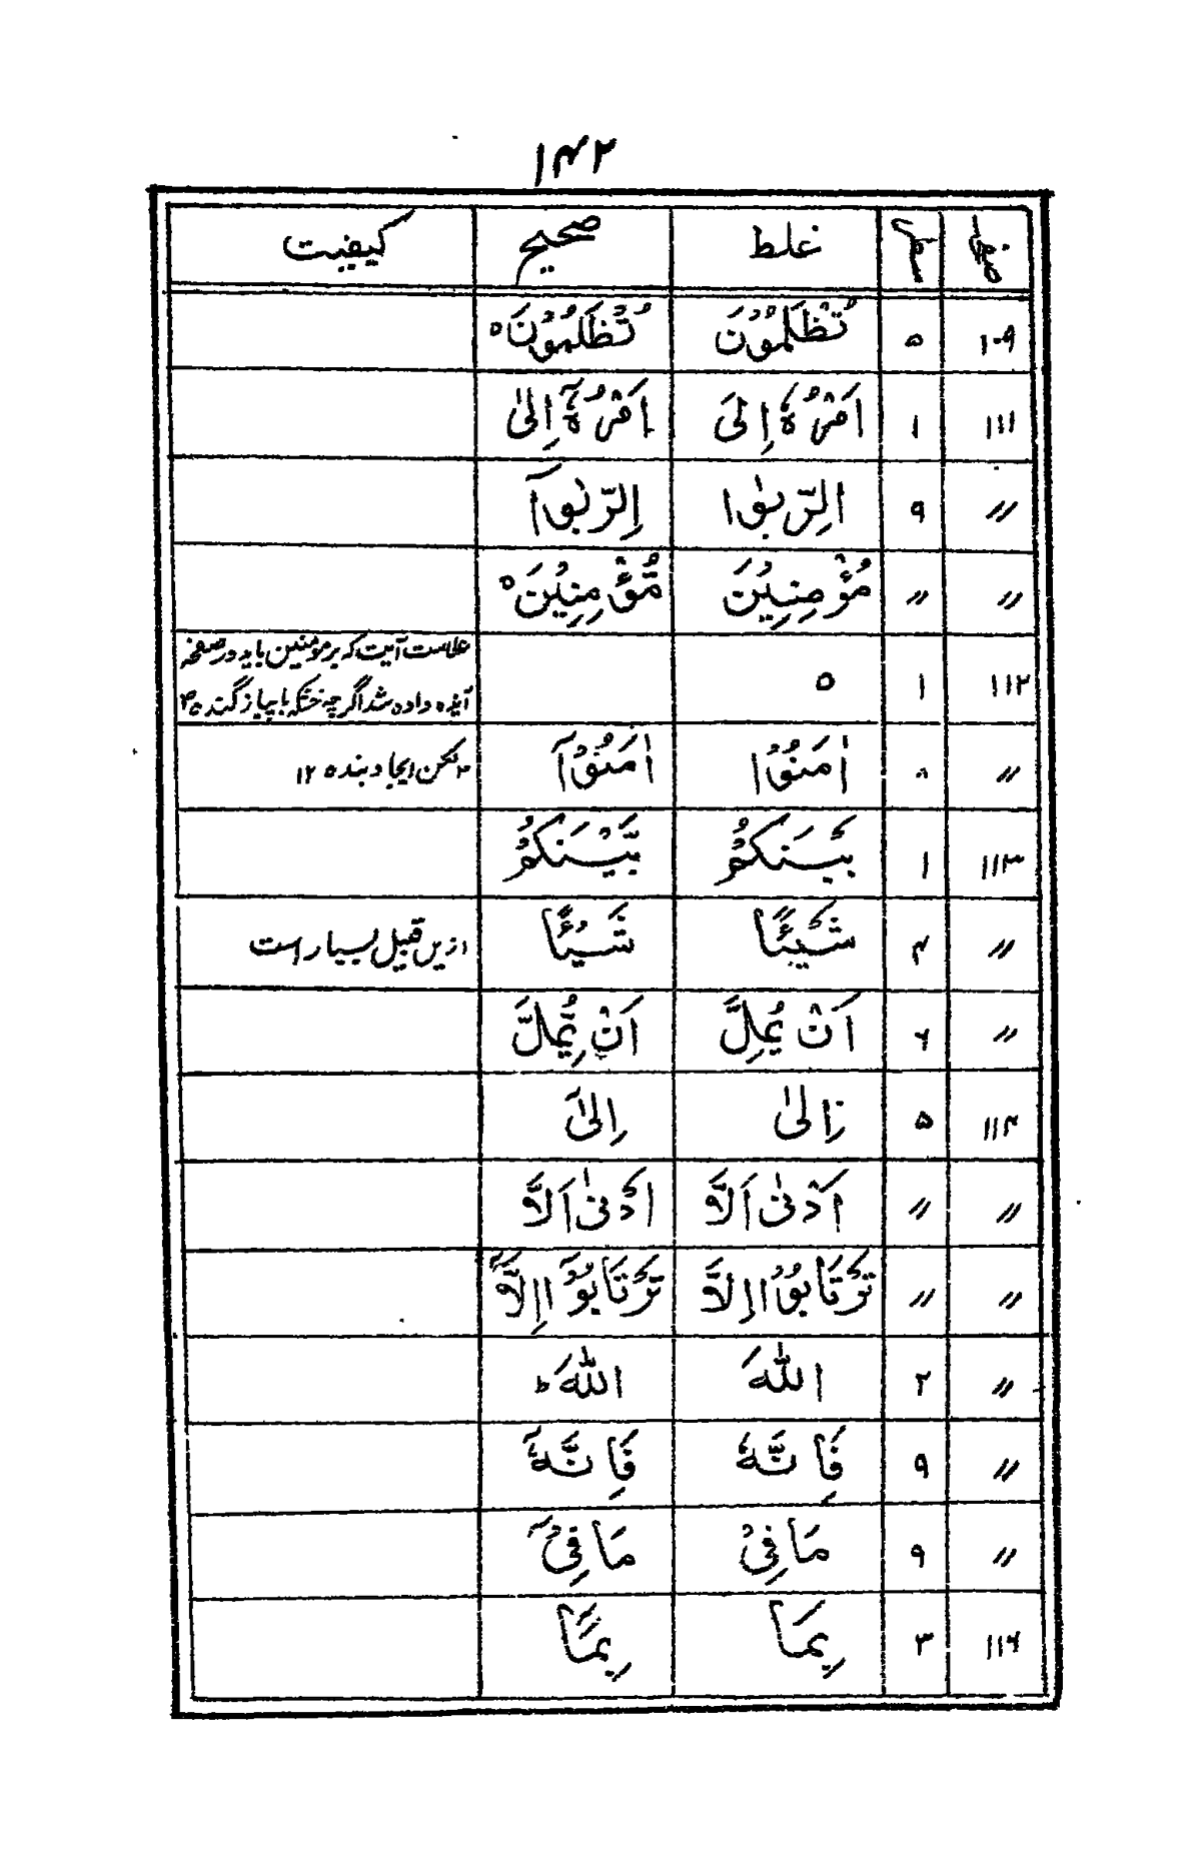 ۱۴۲
صفحہ سطر غلط صحیح کیفیت
۱۰۹ ۵ تُظْلَمُوْنَ تُظْلَمُوْنَ ہ
۱۱۱ ۱ اَمْرُہٗ اِلَی اَمْرُہٗٓ اِلٰی
〃 ۹ الرِّبٰوا الرِّبٰوآ
〃 〃 مُؤْمِنِیْنَ مُّؤْمِنِیْنَ ہ
۱۱۲ ۱ ہ علامت آیت کہ بر مومنین باید در صفحہ
آیندہ دادہ شد اگرچہ خشکہ با پیاز گندہ ۳
〃 ۸ اٰمَنُوْا اٰمَنُوْآ ۳ لکن ایجاد بندہ ۱۲
۱۱۳ ۱ بَیْنَکُمْ بَّیْنَکُمْ
〃 ۴ شَیْئًا شَیْئًا ازیں قبیل بسیار است
〃 ۶ اَنْ یُمِلَّ اَنْ یُّمِلَّ
۱۱۴ ۵ اِلٰی اِلٰٓی
〃 〃 اَدْنٰی اَلَّا اَدْنٰی اَلَّا
〃 〃 تَرْتَابُوْا اِلَّا تَرْتَابُوْٓا اِلَّآ
〃 ۲ اللّٰہَ اللّٰہَ ط
〃 ۹ فَاِنَّہٗ فَاِنَّہٗٓ
〃 ۹ مَا فِیْ مَا فِیْٓ
۱۱۶ ۳ بِمَا بِمَآ